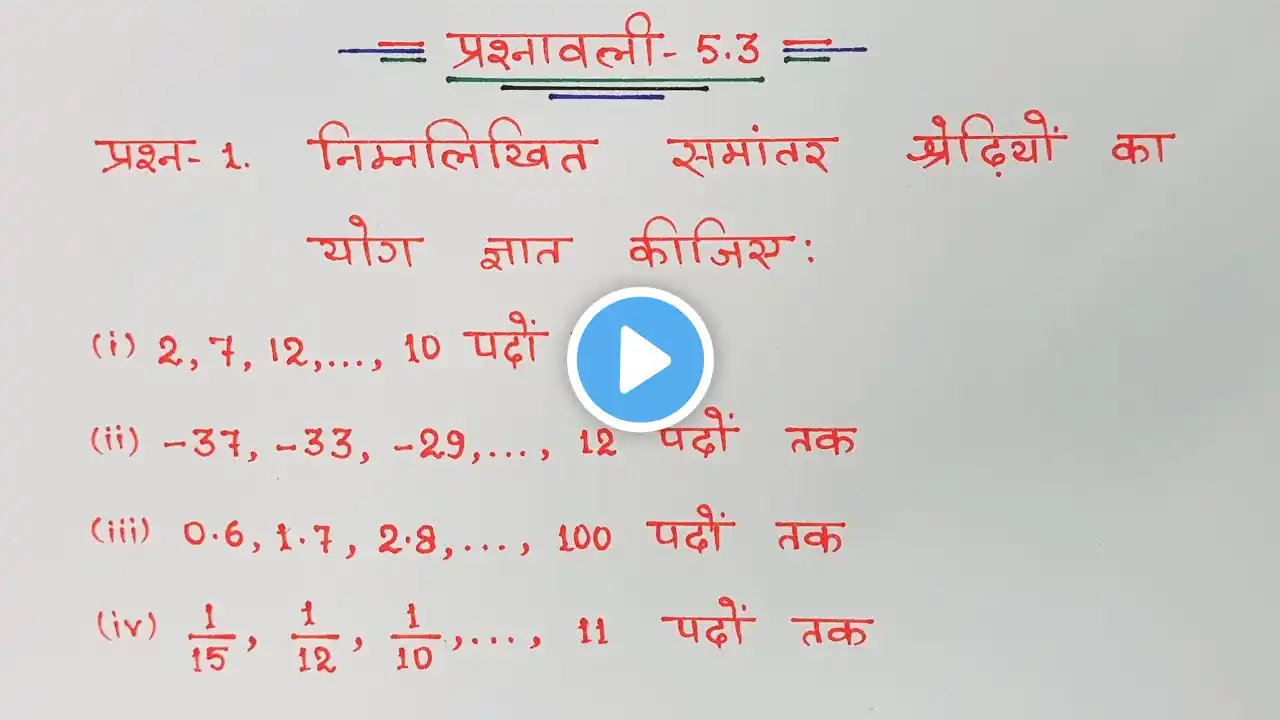 प्रश्नावली - 5.3
प्रश्न - 1. निम्नलिखित समांतर श्रेढ़ियों का
योग ज्ञात कीजिए :
(i) 2, 7, 12, ..., 10 पदों
(ii) -37, -33, -29, ..., 12 पदों तक
(iii) 0.6, 1.7, 2.8, ..., 100 पदों तक
(iv) 1/15, 1/12, 1/10, ..., 11 पदों तक